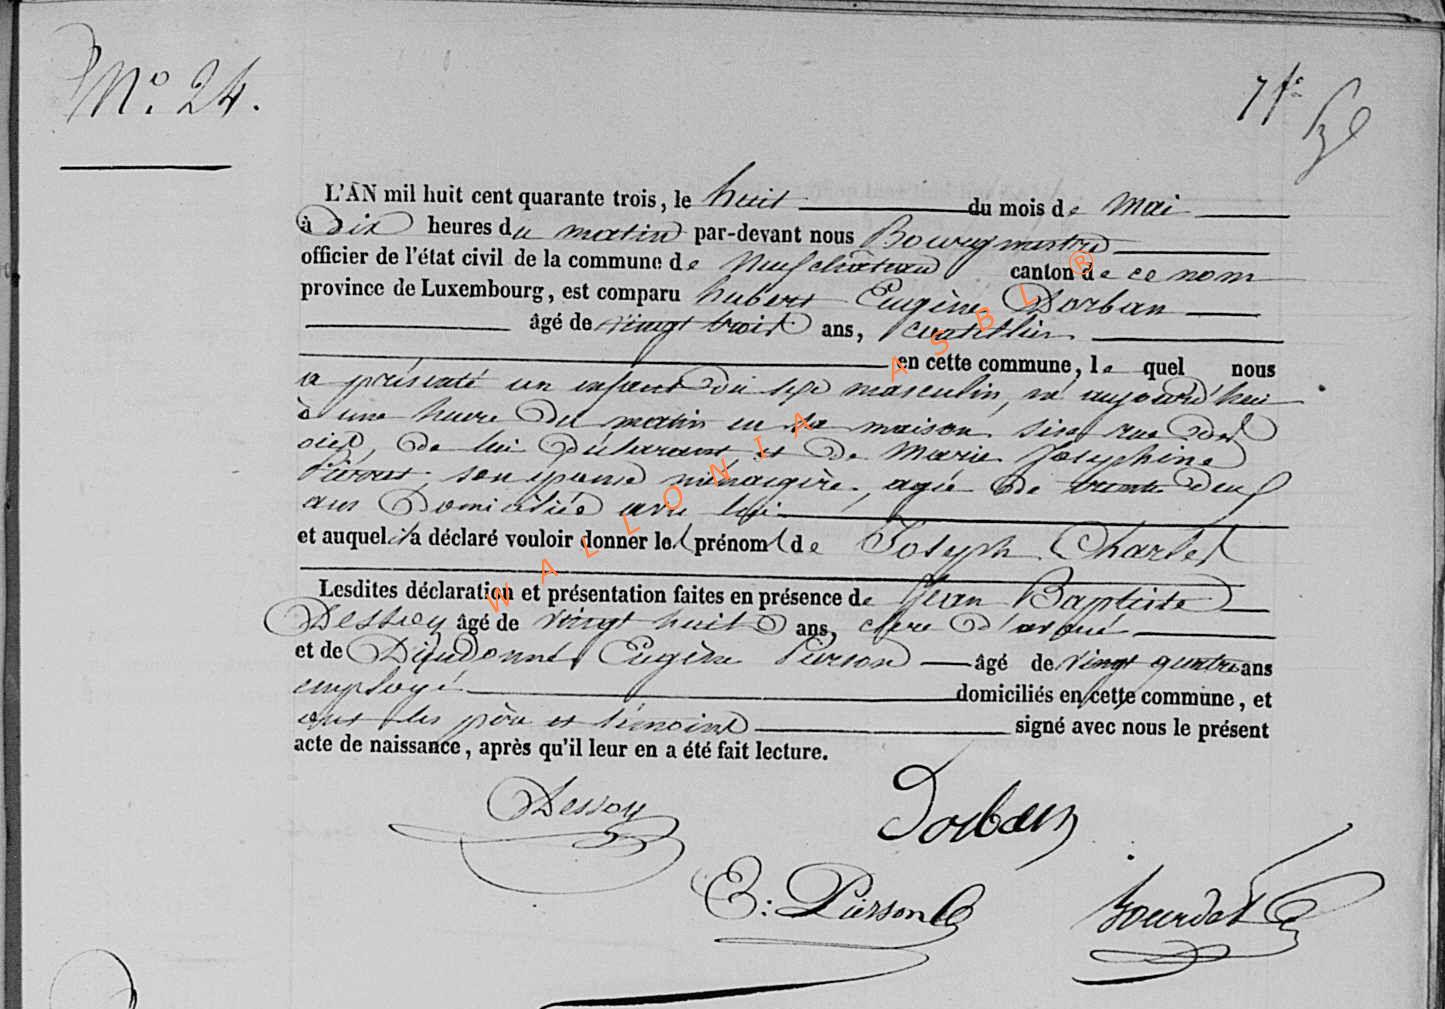 N° 24.
7 f°
L'AN mil huit cent quarante trois, le huit du mois de Mai
à dix heures du matin par-devant nous Bourgmestre
officier de l'état civil de la commune de Neufchâteau canton de ce nom
province de Luxembourg, est comparu hubert Eugène Dorban
âgé de vingt trois ans,
en cette commune, le quel nous
a présenté un enfant du sexe masculin, né aujourd'hui
à une heure du matin en sa maison sise rue des
de lui déclarant et de Marie Josephine
son épouse ménagère, agée de trente deux
ans Domiciliée avec lui
et auquel il a déclaré vouloir donner les prénoms de Joseph Charles
Lesdites déclaration et présentation faites en présence de Jean Baptiste
Dessoy âgé de vingt huit ans, clerc d'avoué
et de Dieudonné Eugène Pierson âgé de vingt quatre ans
employé domiciliés en cette commune, et
ont les père et témoins signé avec nous le présent
acte de naissance, après qu'il leur en a été fait lecture.
Dessoy
Dorban
E: Pierson
Bourdet
WALLONIA ASBL ®